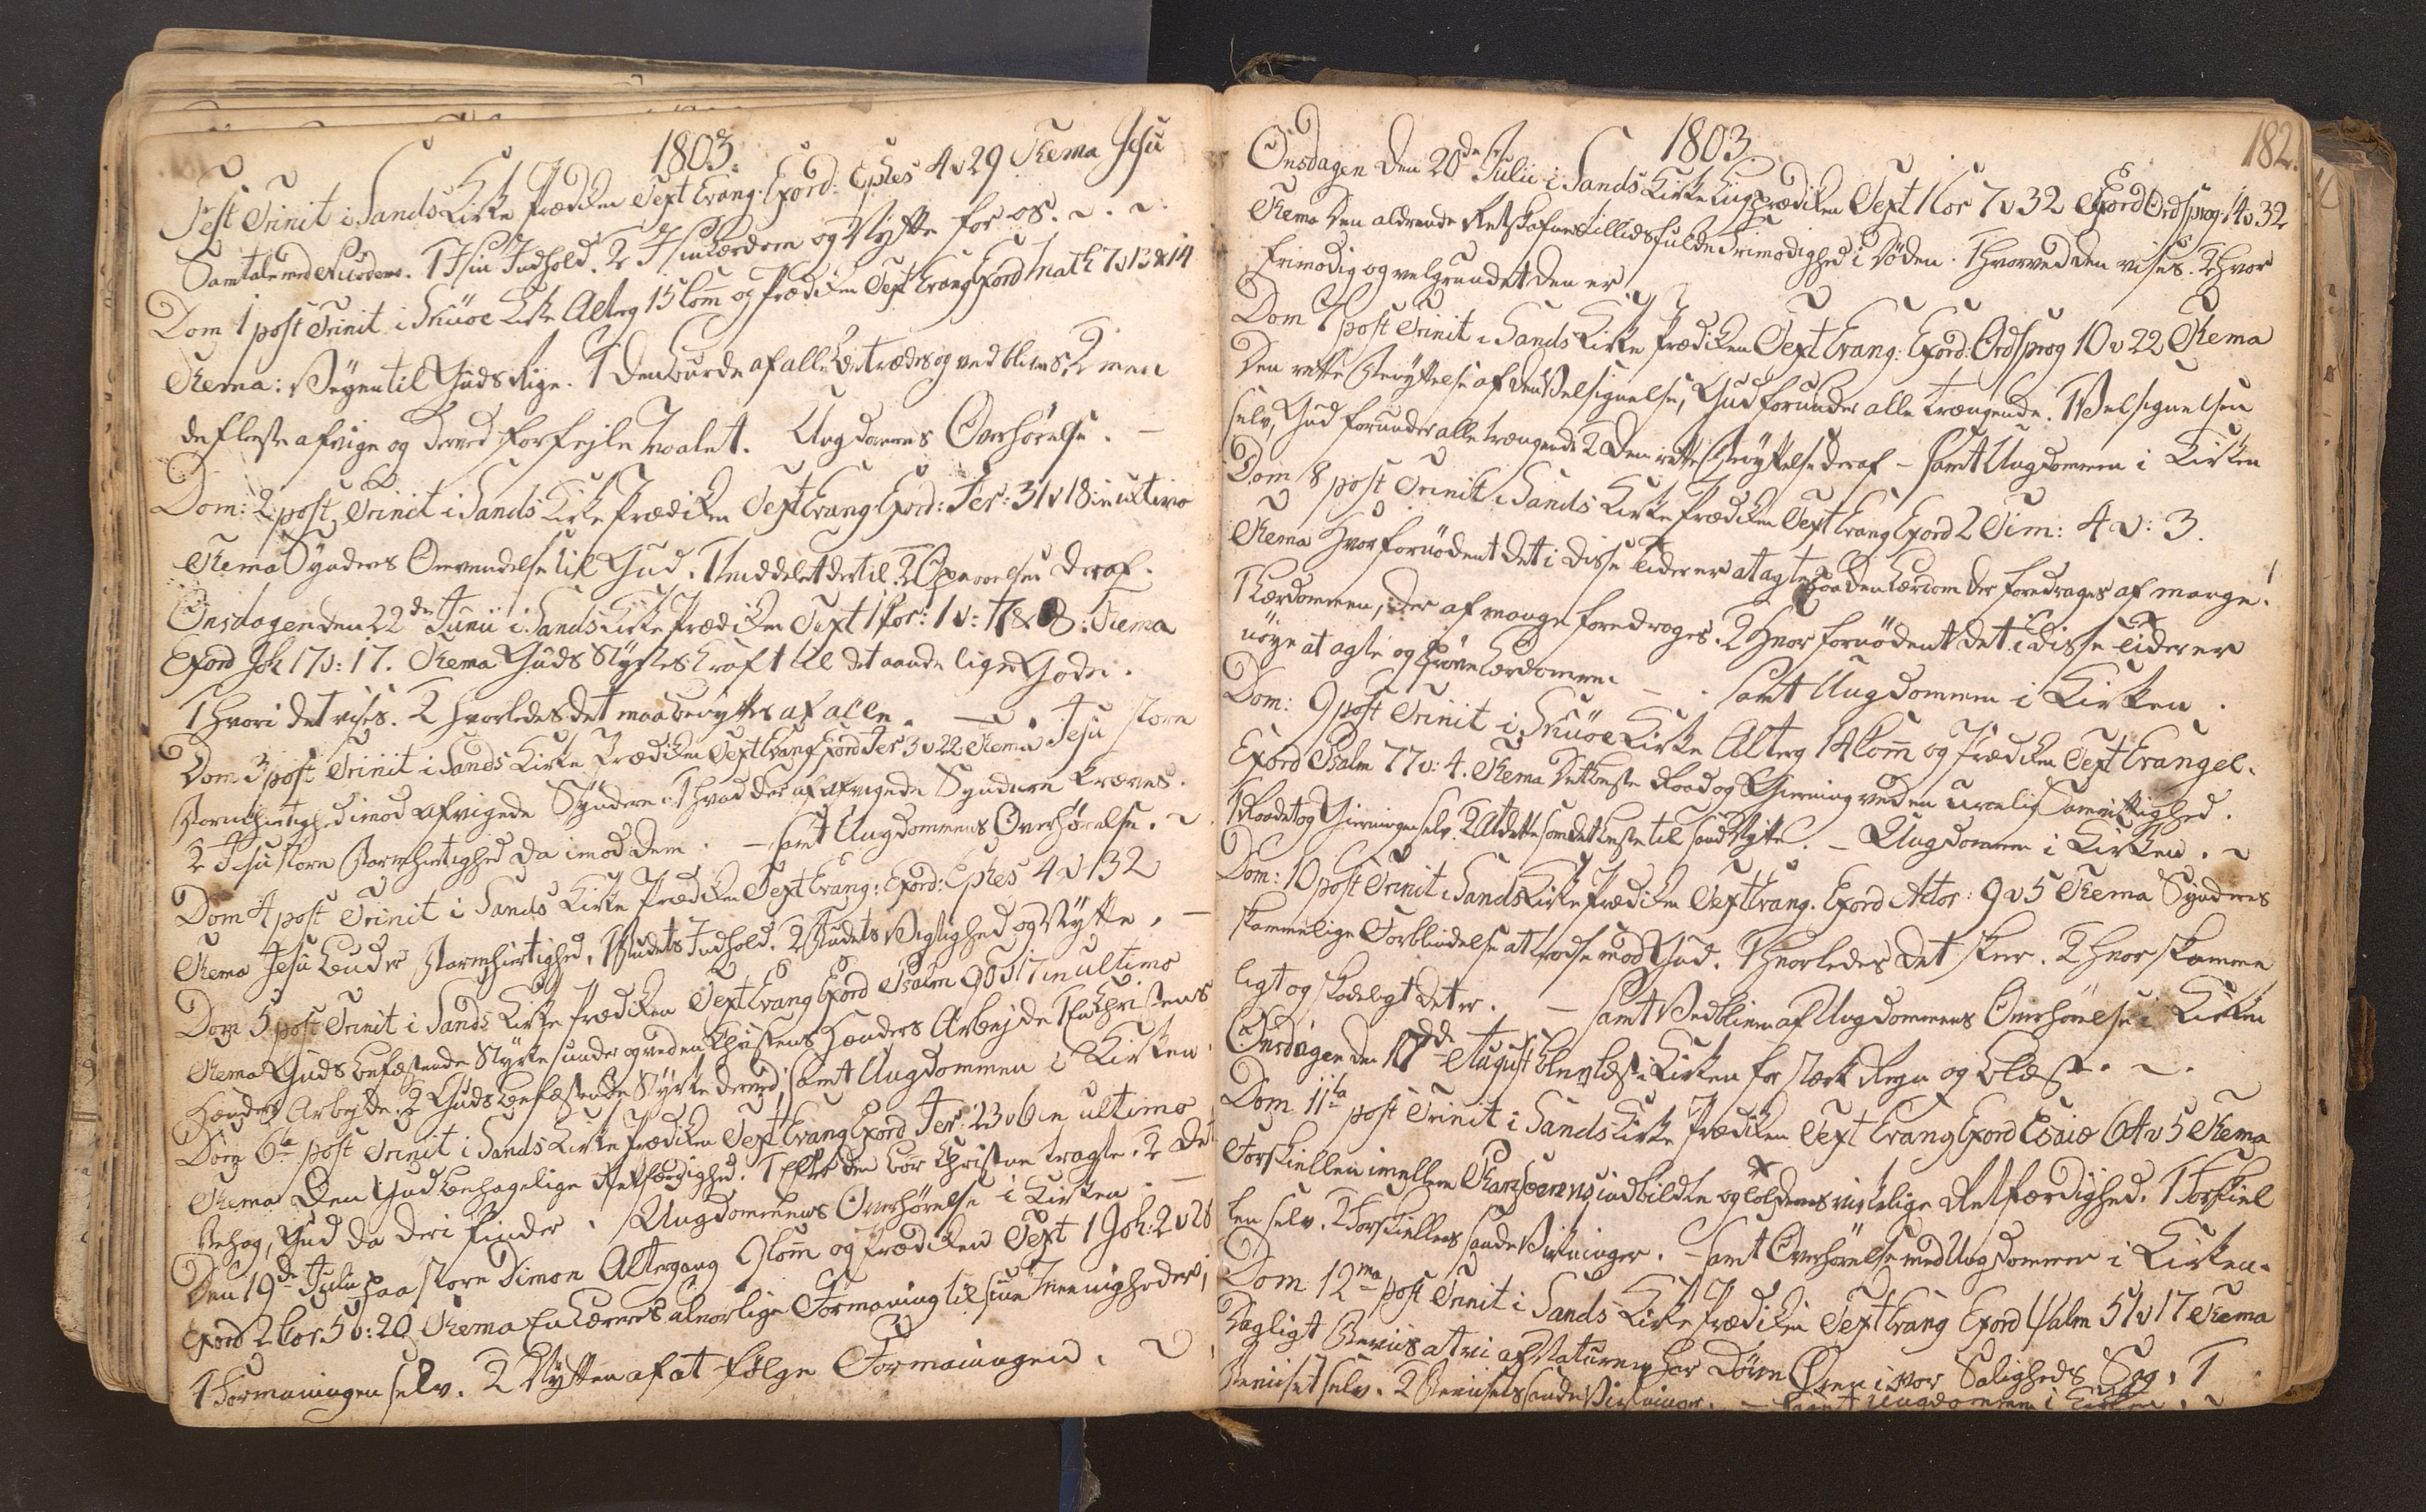 1803.
Fest Trinit i Sands Kirke Prædiken Text Evang: Exord: Ephes 4 v 29 Thema Jesu
Samtale med Nicodemo. 1 dens Indhold. 2 dens Lærdom og Nytte for os.
Dom 1 post Trinit i Skuöe Kirke Alterg 15 Com og Prædiken Text Evang Exord Math 7 v 13 & 14
Thema: Veyen til Guds Rige. 1 Den burde af alle betrædes og ved blives, 2 men
de fleeste afvige og derved forfejle Maalet. Ungdommens Overhörelse.
Dom: 2 post Trinit i Sands Kirke Prædiken Text Evang Exord: Jer: 31 v 18 in ultimo
Thema Synderes Omvendelse til Gud. 1 Middelet dertil. 2 deraf.
Onsdagen den 22de Junii i Sands Kirke Prædiken Text 1 Cor: 1 v: 7 & 8: Tema
Exord Joh 17 v: 17. Thema Guds Styrkes Kraft til det aandelige Gode.
1 Hvori det vises. 2 hvorledes det maa benyttes af alle.
Dom 3 post Trinit i Sands Kirke Prædiken Text Evang Exord Jer 3 v 22 Thema Jesu store
Barmhiertighed imod afvigede Syndere. 1 Hvad der af afvigede Syndere kræves.
2 Jesu store Barmhiertighed da imod dem. - samt Ungdommens Overhörelse.
Dom 4 post Trinit i Sands Kirke Prædiken Text Evang: Exord: Ephes 4 v 32
Thema Jesu Bud Barmhiertighed, 1 Budets Indhold. 2 Budets Vigtighed og Nytte.
Dom 5 post Trinit i Sands Kirke Prædiken Text Evang Exord Psalm 90 v 17 in ultimo
Thema Guds befæstende Styrke under og ved en Christens Hænders Arbejde 1 En Christens
Hænders Arbejde. 2 Guds befæstende Styrke derved, samt Ungdommen i Kirken.
Dom 6ta post Trinit i Sands Kirke Prædiken Text Evang Exord Jer: 23 v 6 in ultimo
Thema Den Gud behagelige Retfærdighed. 1 Efter den bör Christne tragte. 2 Det
Behag, Gud da deri finder. Ungdommens Overhörelse i Kirken.
Den 19de Julii paa store Dimon Altergang 9 Com og Prædiken Text 1 Joh: 2 v 28
Exord 2 Cor: 5 v: 20 Thema En Lærers alvorlige Formaning til sine Meenigheder,
1 Formaningen selv. 2 Nytten af at fölge Formaningen.
182.
1803
Onsdagen den 20de Julii i Sands Kirke Prædiken Text 1 Cor 7 v 32 Exord Ordsprog: 14 v 32
Thema Den aldrende Retskafnes tillidsfulde Frimodighed i Döden. 1 Hvorved den vises. 2 Hvor
frimodig og velgrundet den er
Dom 7 post Trinit i Sands Kirke Prædiken Text Evang: Exord: Ordsprog 10 v 22 Thema
Den rette Benyttelse af den Velsignelse, Gud forunder alle trængende. 1 Velsignelsen
selv, Gud forunder alle trængende 2 Den rette Benyttelse deraf - samt Ungdommen i Kirken
Dom 8 post Trinit i Sands Kirke Prædiken Text Evang Exord 2 Tim: 4 v: 3.
Thema Hvor fornödent det i disse Tider er at agte paa den Lærdom der foredrages af mange.
1 Lærdommen, der af mange foredrages. 2 Hvor fornödent det i disse Tider er
nöye at agte og pröve Lærdommen - samt Ungdommen i Kirken.
Dom: 9 post Trinit i Skuöe Kirke Alterg 14 Com og Prædiken Text Evangel.
Exord Psalm 77 v: 4. Thema Det beste Raad og Gierning ved en uroelig Samvittighed.
1 Raadet og Gierningen selv. 2 At dette som det beste til sand Nytte. - Ungdommen i Kirken.
Dom: 10 post Trinit i Sands Kirke Prædiken Text Evang. Exord Actor: 9 v 5 Thema Synderes
skammelige Forblindelse at trodse mod Gud. 1 Hvorledes det skeer. 2 Hvor skamme
ligt og skadeligt det er. - samt Vedbliven af Ungdommens Overhörelse i Kirken
Onsdagen den 17de August blev læst i Kirken for stærk Regn og Blæst.
Dom 11ta post Trinit i Sands Kirke Prædiken Text Evang Exord Esaiæ 64 v 5 Thema
Forskiellen imellem Pharisæerens indbildte og Tolderens virkelige Retfærdighed. 1 Forskiel
len selv. 2 Forskiellens sande Virkninger. - samt Overhörelse med Ungdommen i Kirken.
Dom 12ma post Trinit i Sands Kirke Prædiken Text Evang Exord Psalm 51 v 17 Thema
Dagligt Beviis at vi af Naturen har döve Ören i vor Saligheds Sag. 1
Beviset selv. 2 Bevisets sande Virkninger. - samt Ungdommen i Kirken.